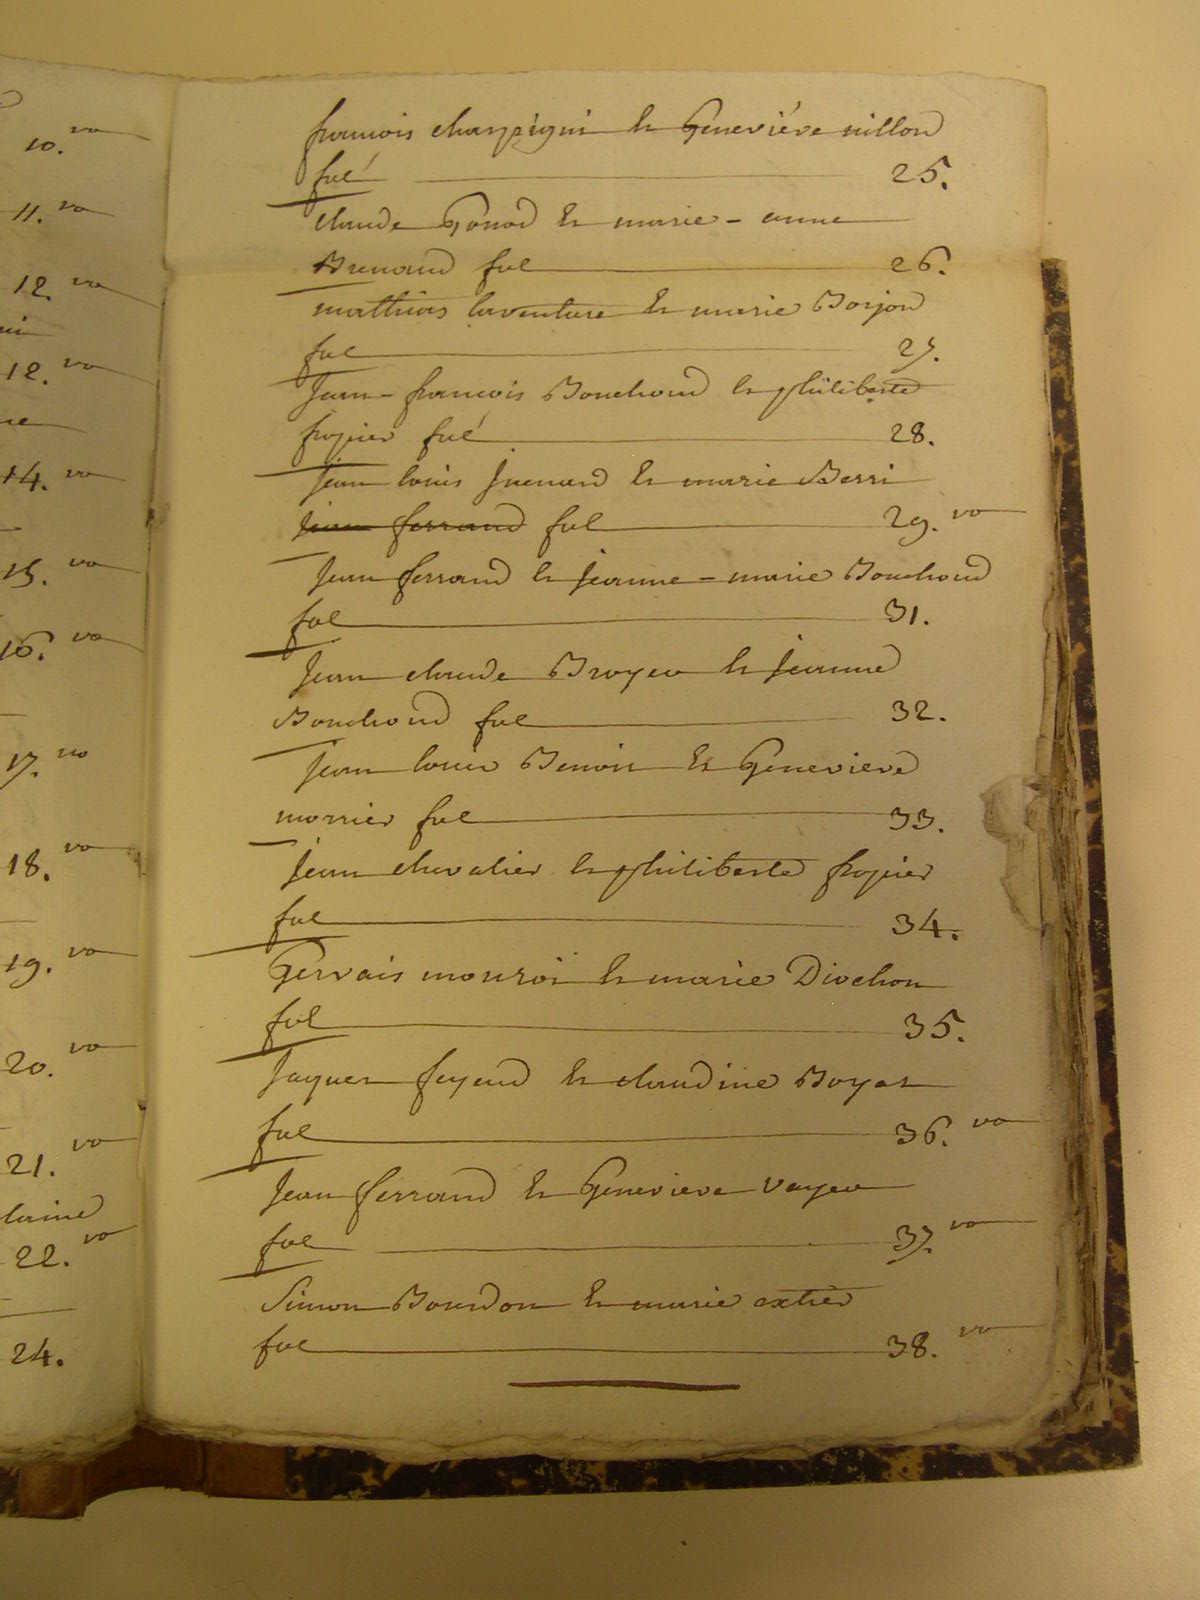 10. vo
11. vo
12. vo
12. vo
14. vo
15. vo
16. vo
17. vo
18. vo
19. vo
20. vo
21. vo
22. vo
24.
francois champigni et Geneviéve nillon
fol 25.
claude Gonod et marie - anne
Brenand fol 26.
mathias laventure et marie Borjon
fol 27.
Jean - francois Bouchoud et philiberte
fropier fol 28.
Jean louis Juenard et marie Berri
Jean ferrand fol 29. vo
Jean ferrand et jeanne - marie Bouchoud
fol 31.
Jean claude Broyeu et jeanne
Bouchoud fol 32.
Jean louis Benoit et Genevieve
morrier fol 33.
Jean chevalier et philiberte fropier
fol 34.
Gervais mouroi et marie Diochon
fol 35.
Jaques feyeud et claudine Boyat
fol 36. vo
Jean ferrand et Genevieve Vayeu
fol 37. vo
Simon Bourdon et marie extier
fol 38. vo